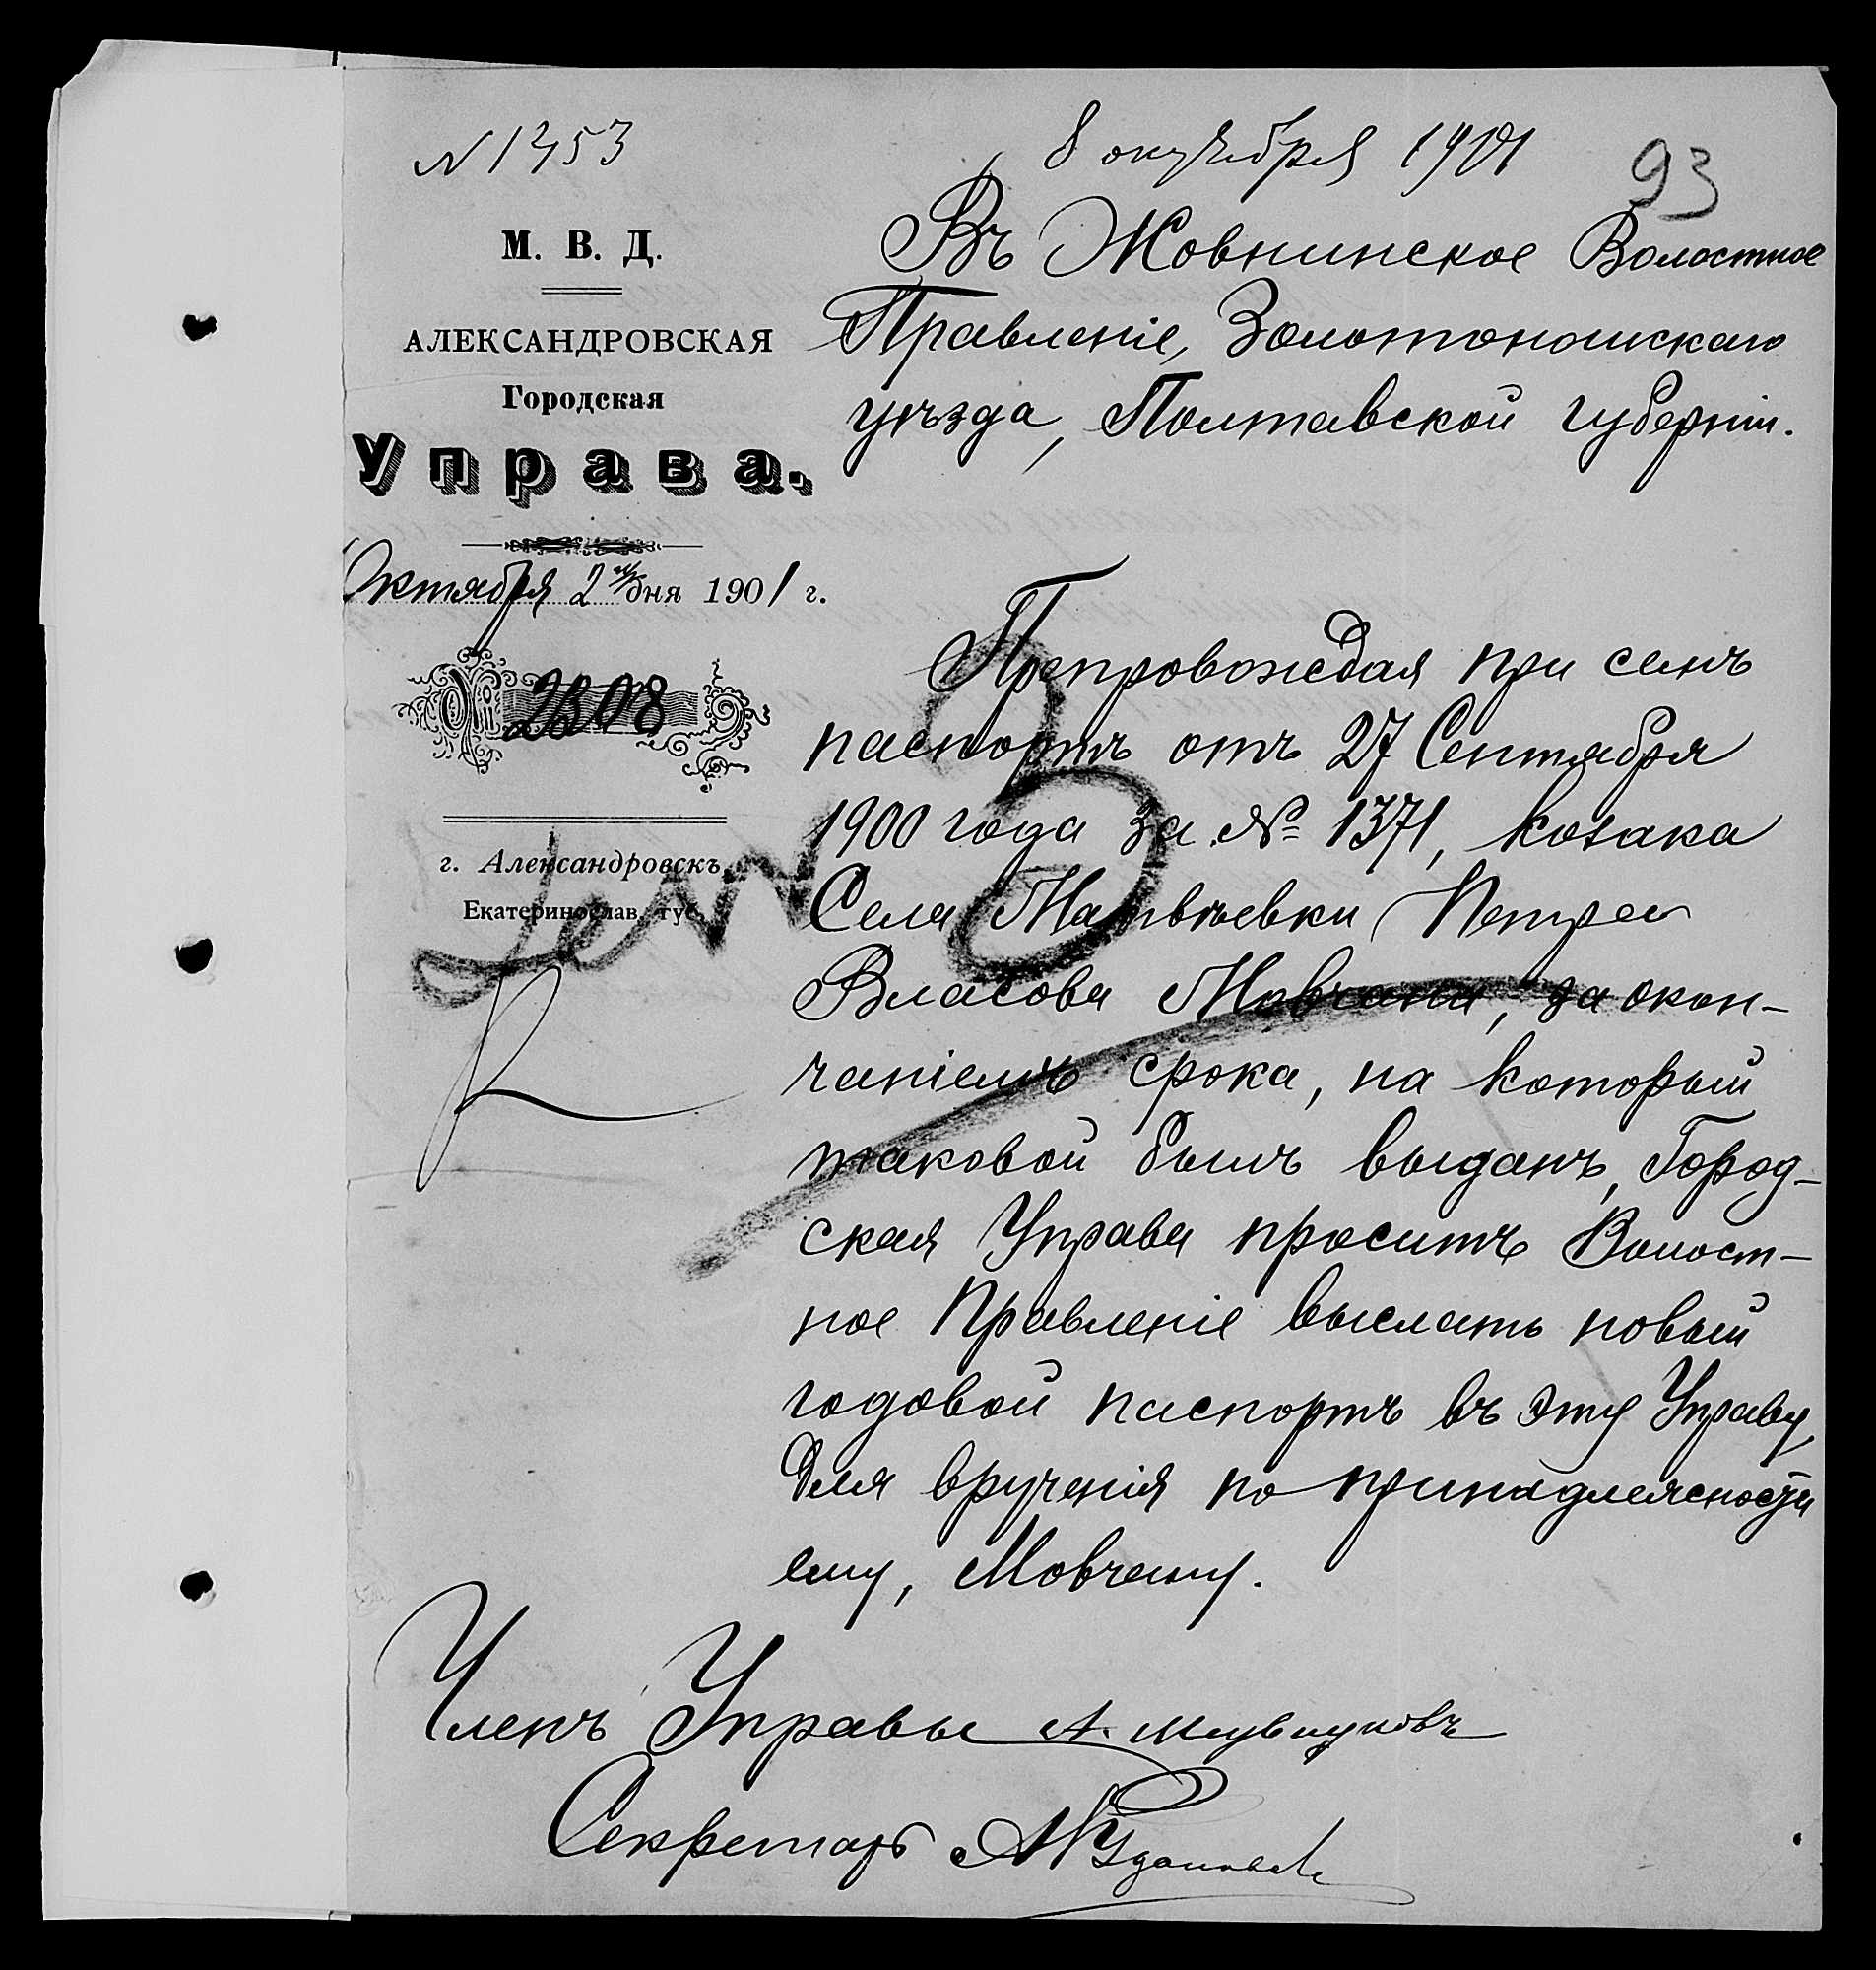 N 1453
8 октября 1901
93
М. В. Д.
АЛЕКСАНДРОВСКАЯ
Городская
Управа.
Октября 2 дня 1901 г.
№ 2308
г. Александровскъ,
Екатеринослав. губ.
Въ Жовнинское Волостное
Правленіе, Золотоношскаго
уѣзда, Полтавской губерніи.
Препровождая при семъ
паспортъ отъ 27 Сентября
1900 года за № 1371, козака
Села Матвѣевки Петра
Власова Мовчана, за окон-
чаніемъ срока, на который
таковой былъ выданъ, Город-
ская Управа проситъ Волост-
ное Правленіе выслать новый
годовой паспортъ въ эту Управу,
для врученія по принадлежности
ему, Мовчану.
Членъ Управы А.
Секретарь